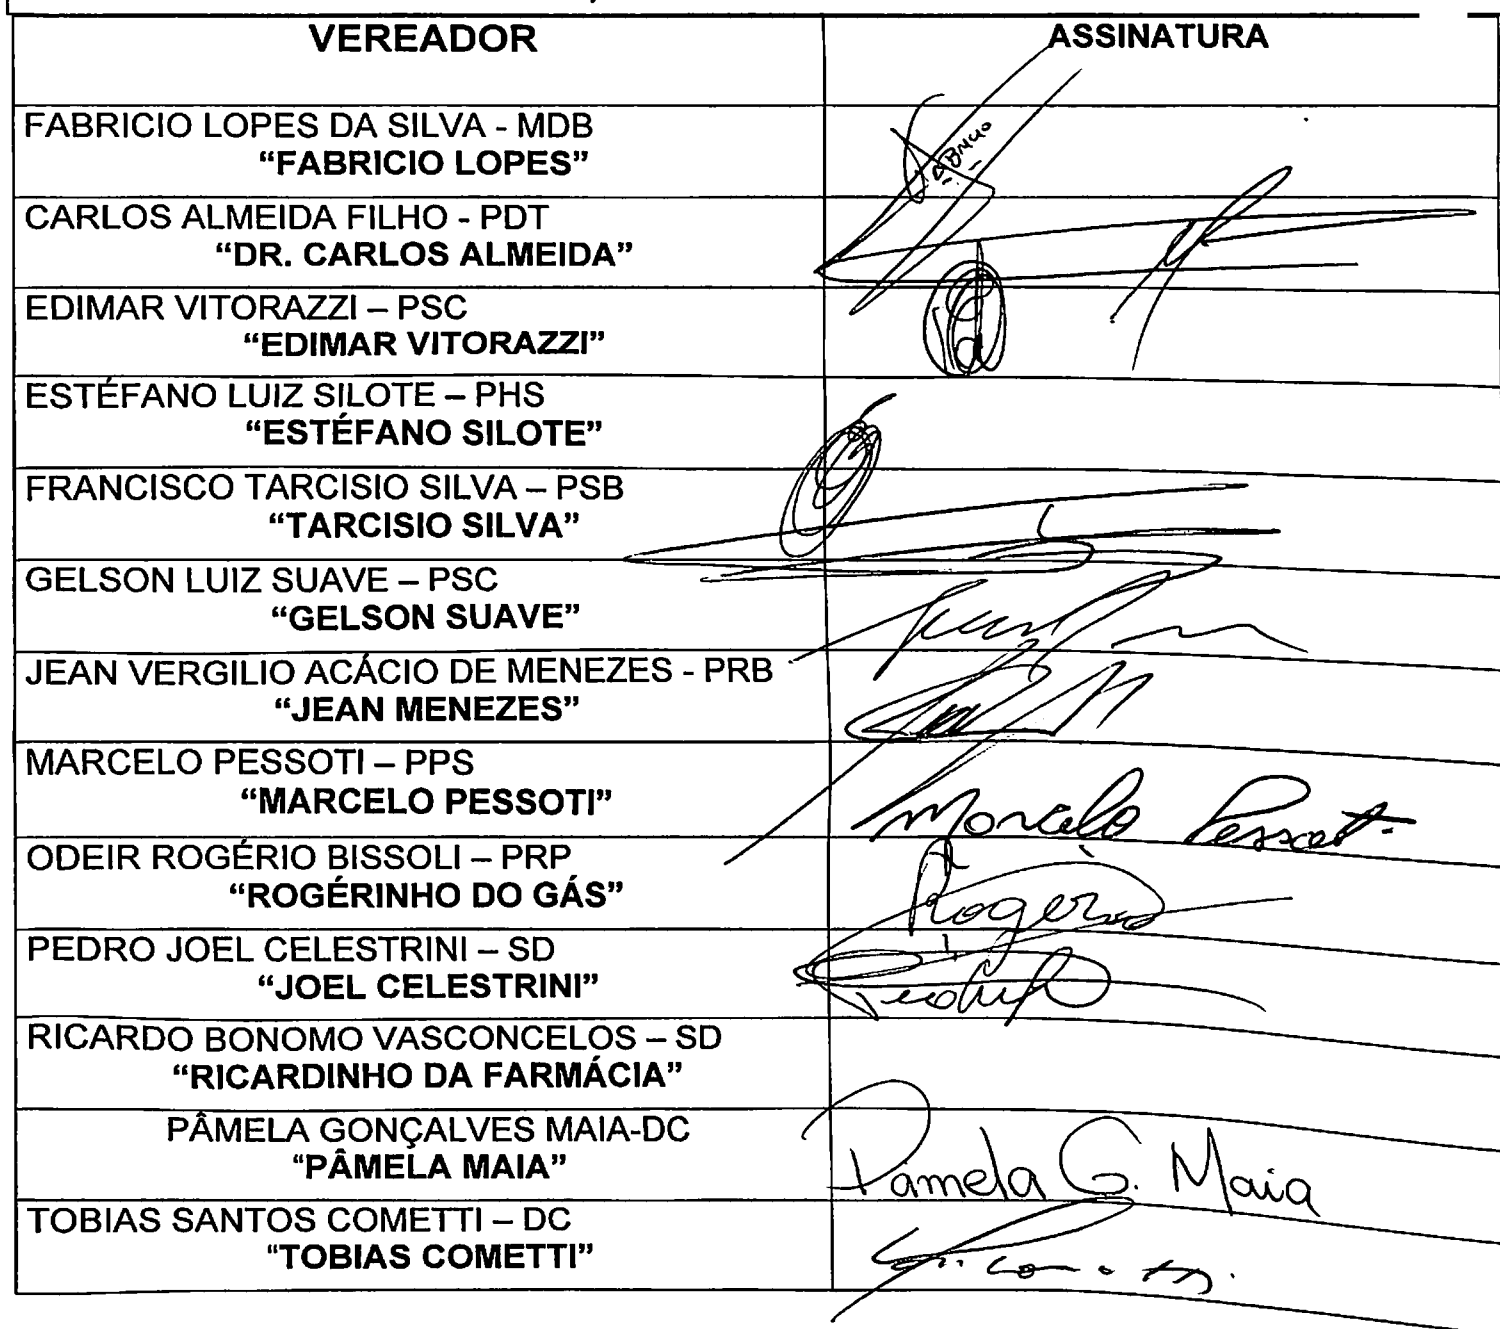 VEREADOR ASSINATURA
FABRICIO LOPES DA SILVA - MDB
“FABRICIO LOPES”
CARLOS ALMEIDA FILHO - PDT
“DR. CARLOS ALMEIDA”
EDIMAR VITORAZZI – PSC
“EDIMAR VITORAZZI”
ESTÉFANO LUIZ SILOTE – PHS
“ESTÉFANO SILOTE”
FRANCISCO TARCISIO SILVA – PSB
“TARCISIO SILVA”
GELSON LUIZ SUAVE – PSC
“GELSON SUAVE”
JEAN VERGILIO ACÁCIO DE MENEZES - PRB
“JEAN MENEZES”
MARCELO PESSOTI – PPS
“MARCELO PESSOTI”
Marcelo
ODEIR ROGÉRIO BISSOLI – PRP
“ROGÉRINHO DO GÁS”
Rogério
PEDRO JOEL CELESTRINI – SD
“JOEL CELESTRINI”
RICARDO BONOMO VASCONCELOS – SD
“RICARDINHO DA FARMÁCIA”
PÂMELA GONÇALVES MAIA-DC
“PÂMELA MAIA”
Pamela G. Maia
TOBIAS SANTOS COMETTI – DC
“TOBIAS COMETTI”